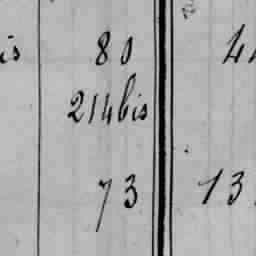 is 80 4
214bis
73 13